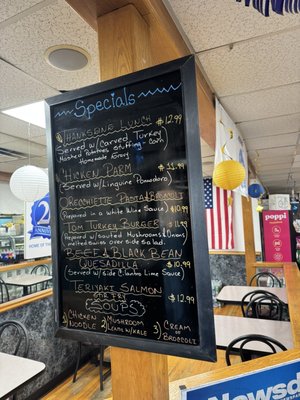 Specials
Hanksgive Lunch $12.99
Served w/ Carved Turkey
Mashed Potatoes Stuffing - Corn
Homemade
Chicken Parm $11.99
Served w/ Linguine Pomodoro
Orecchiette Pasta & Broccoli
Prepared in a White Wine Sauce $10.99
Tom Turkey Burger $11.99
Prepared w/ Sautéed Mushrooms & Onions
melted swiss over side salad.
Beef & Black Bean
Quesadilla $10.99
(Served w/ Side Cilantro Lime Sauce)
Teriyaki Salmon
Stir Fry $12.99
Soups
1) Chicken Noodle
2) Mushroom Lentil w/ Kale
3) Cream of Broccoli
poppi
Newsd